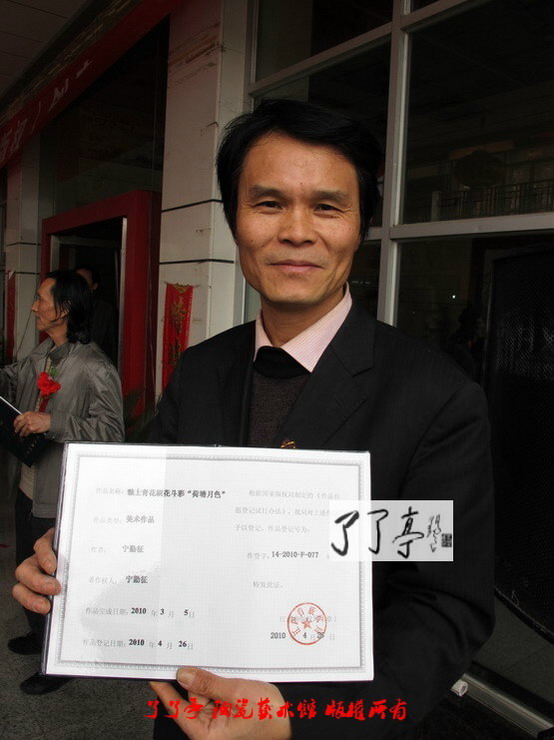 作品名称：釉上青花斗彩“荷塘月色”
作品类型：美术作品
作者：宁勤征
著作权人：宁勤征
作品完成日期：2010 年 3 月 5日
作品登记日期：2010 年 4 月 26日
根据国家版权局制定的《作品自
愿登记试行办法》，
予以登记，作品登记号为：
作登字：14-2010-F-077
特发此证。
2010 4月
了了亭
了了亭 陶瓷艺术馆 版权所有